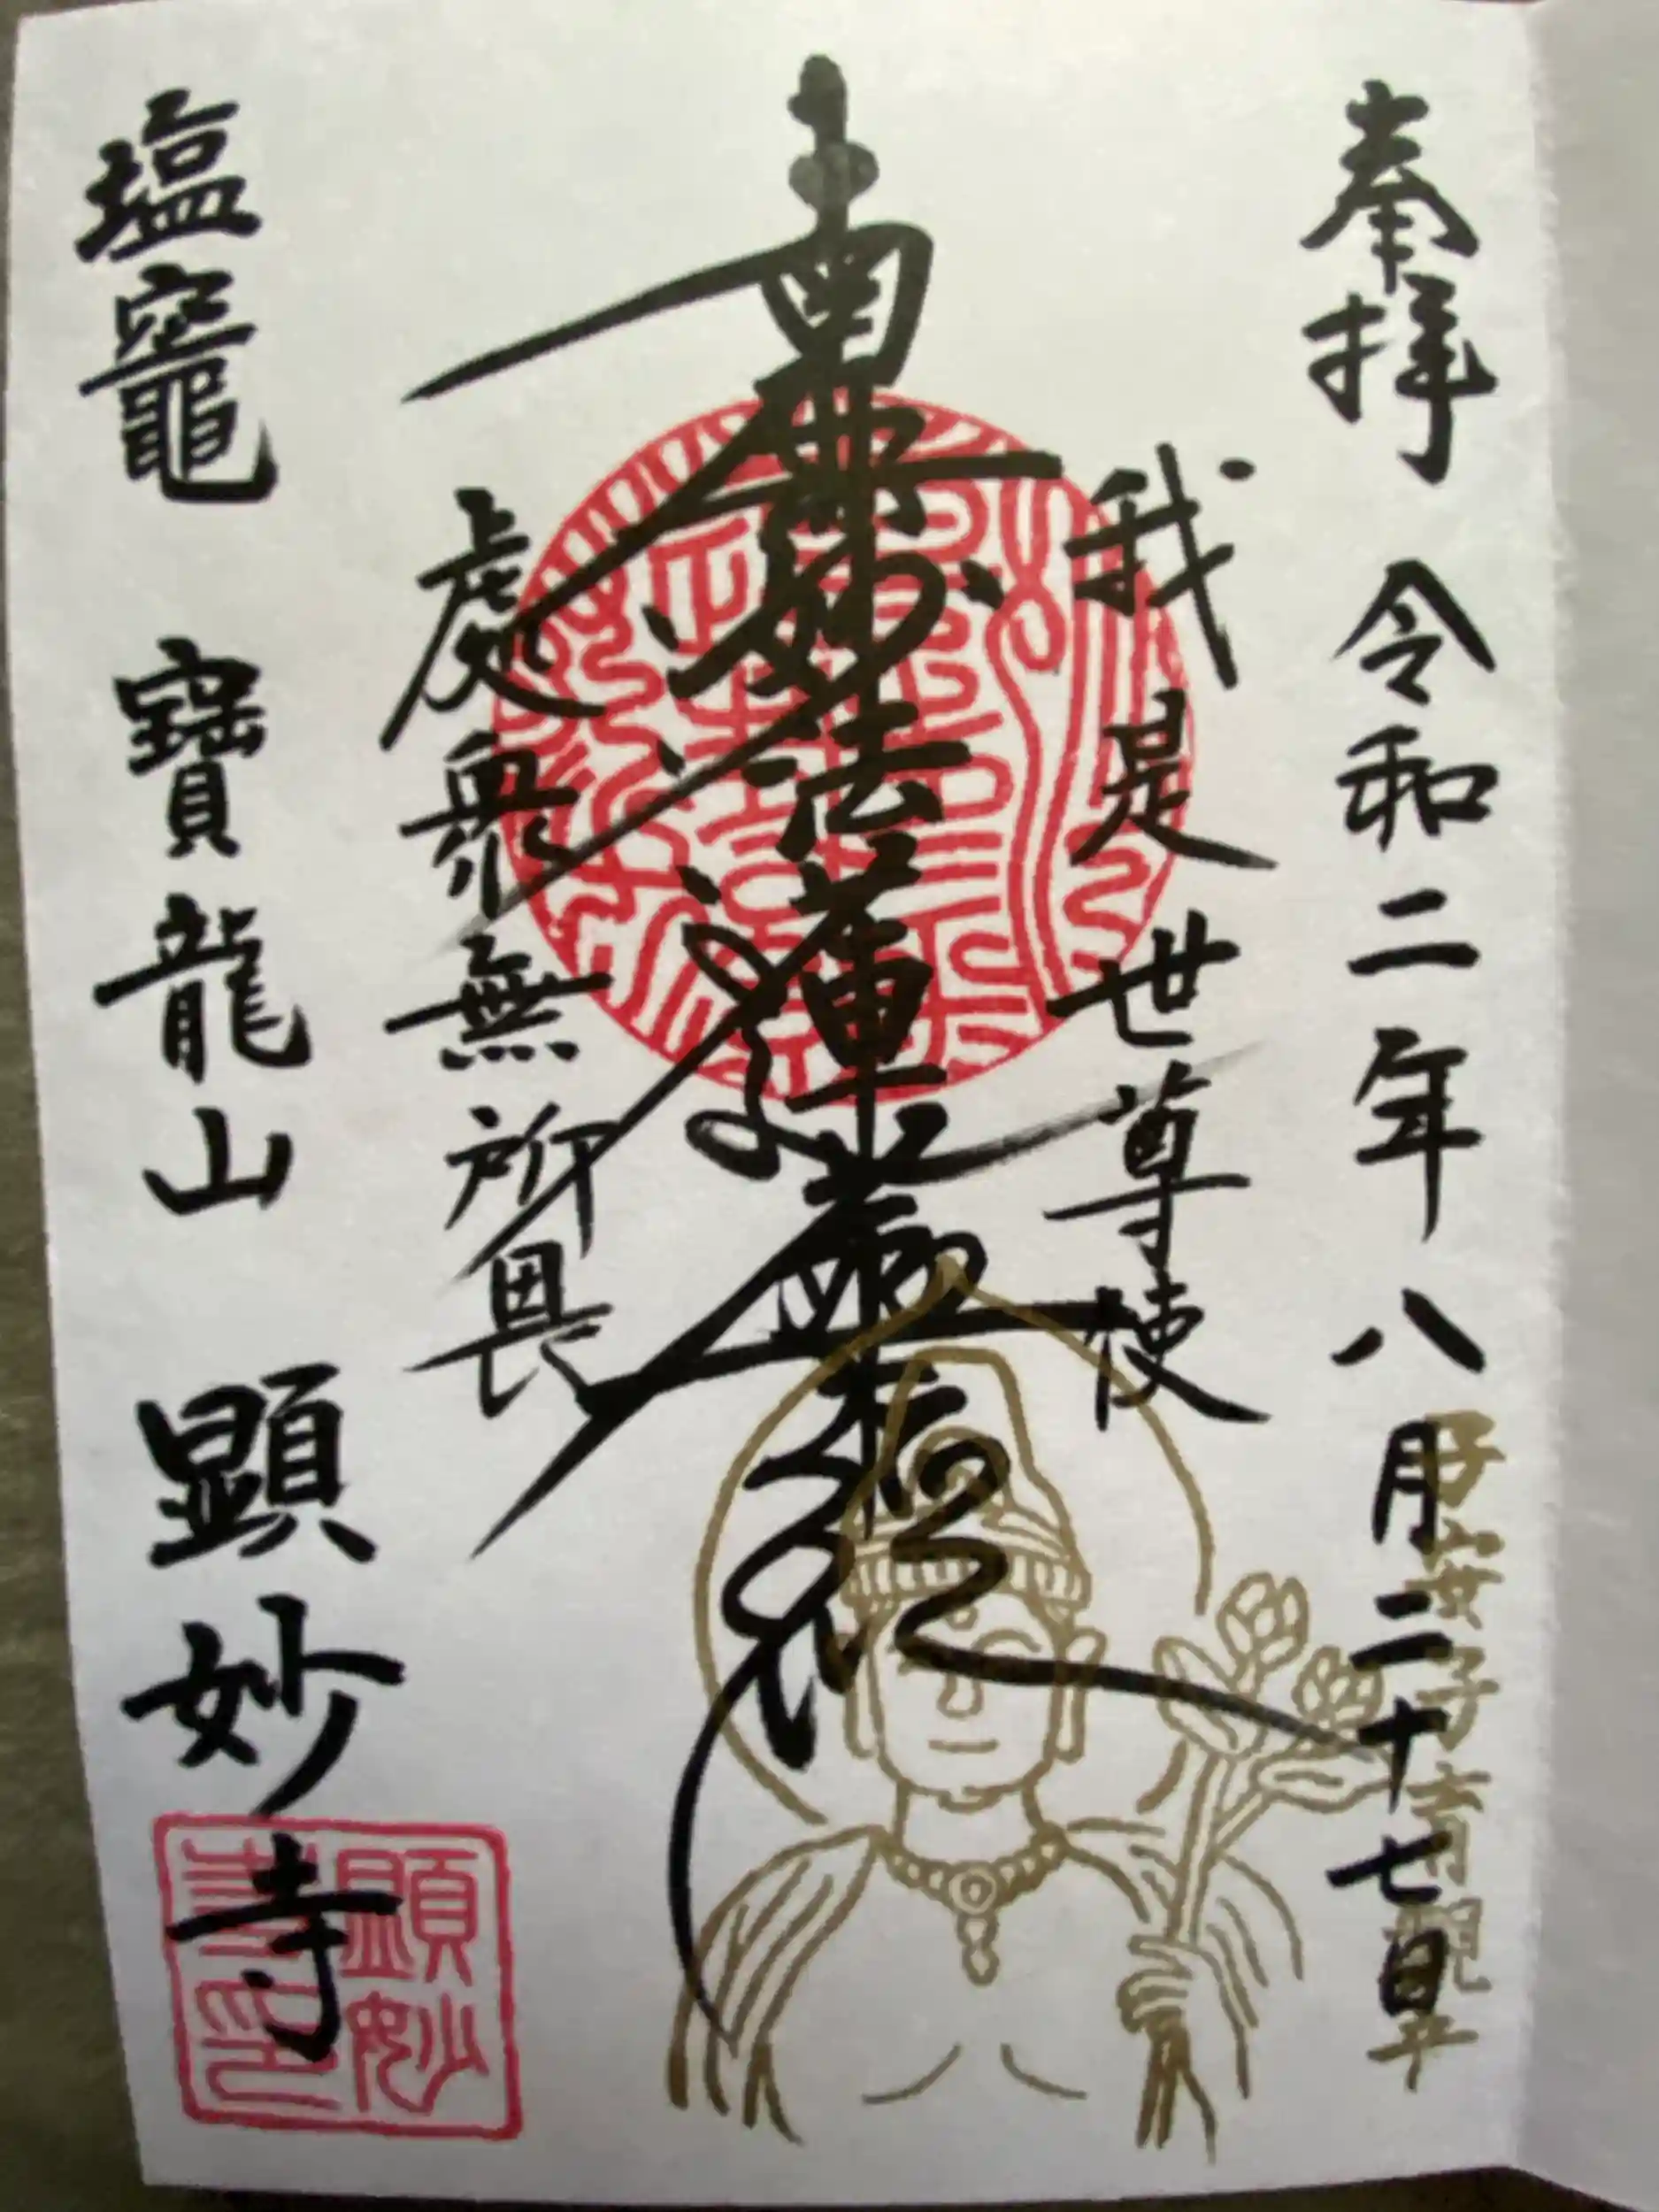 奉拝 令和二年八月二十七日
子安子育観
我是世尊使
南無妙法蓮華経
處衆無所畏
塩竈 寶龍山 顕妙寺
顕妙
寺印